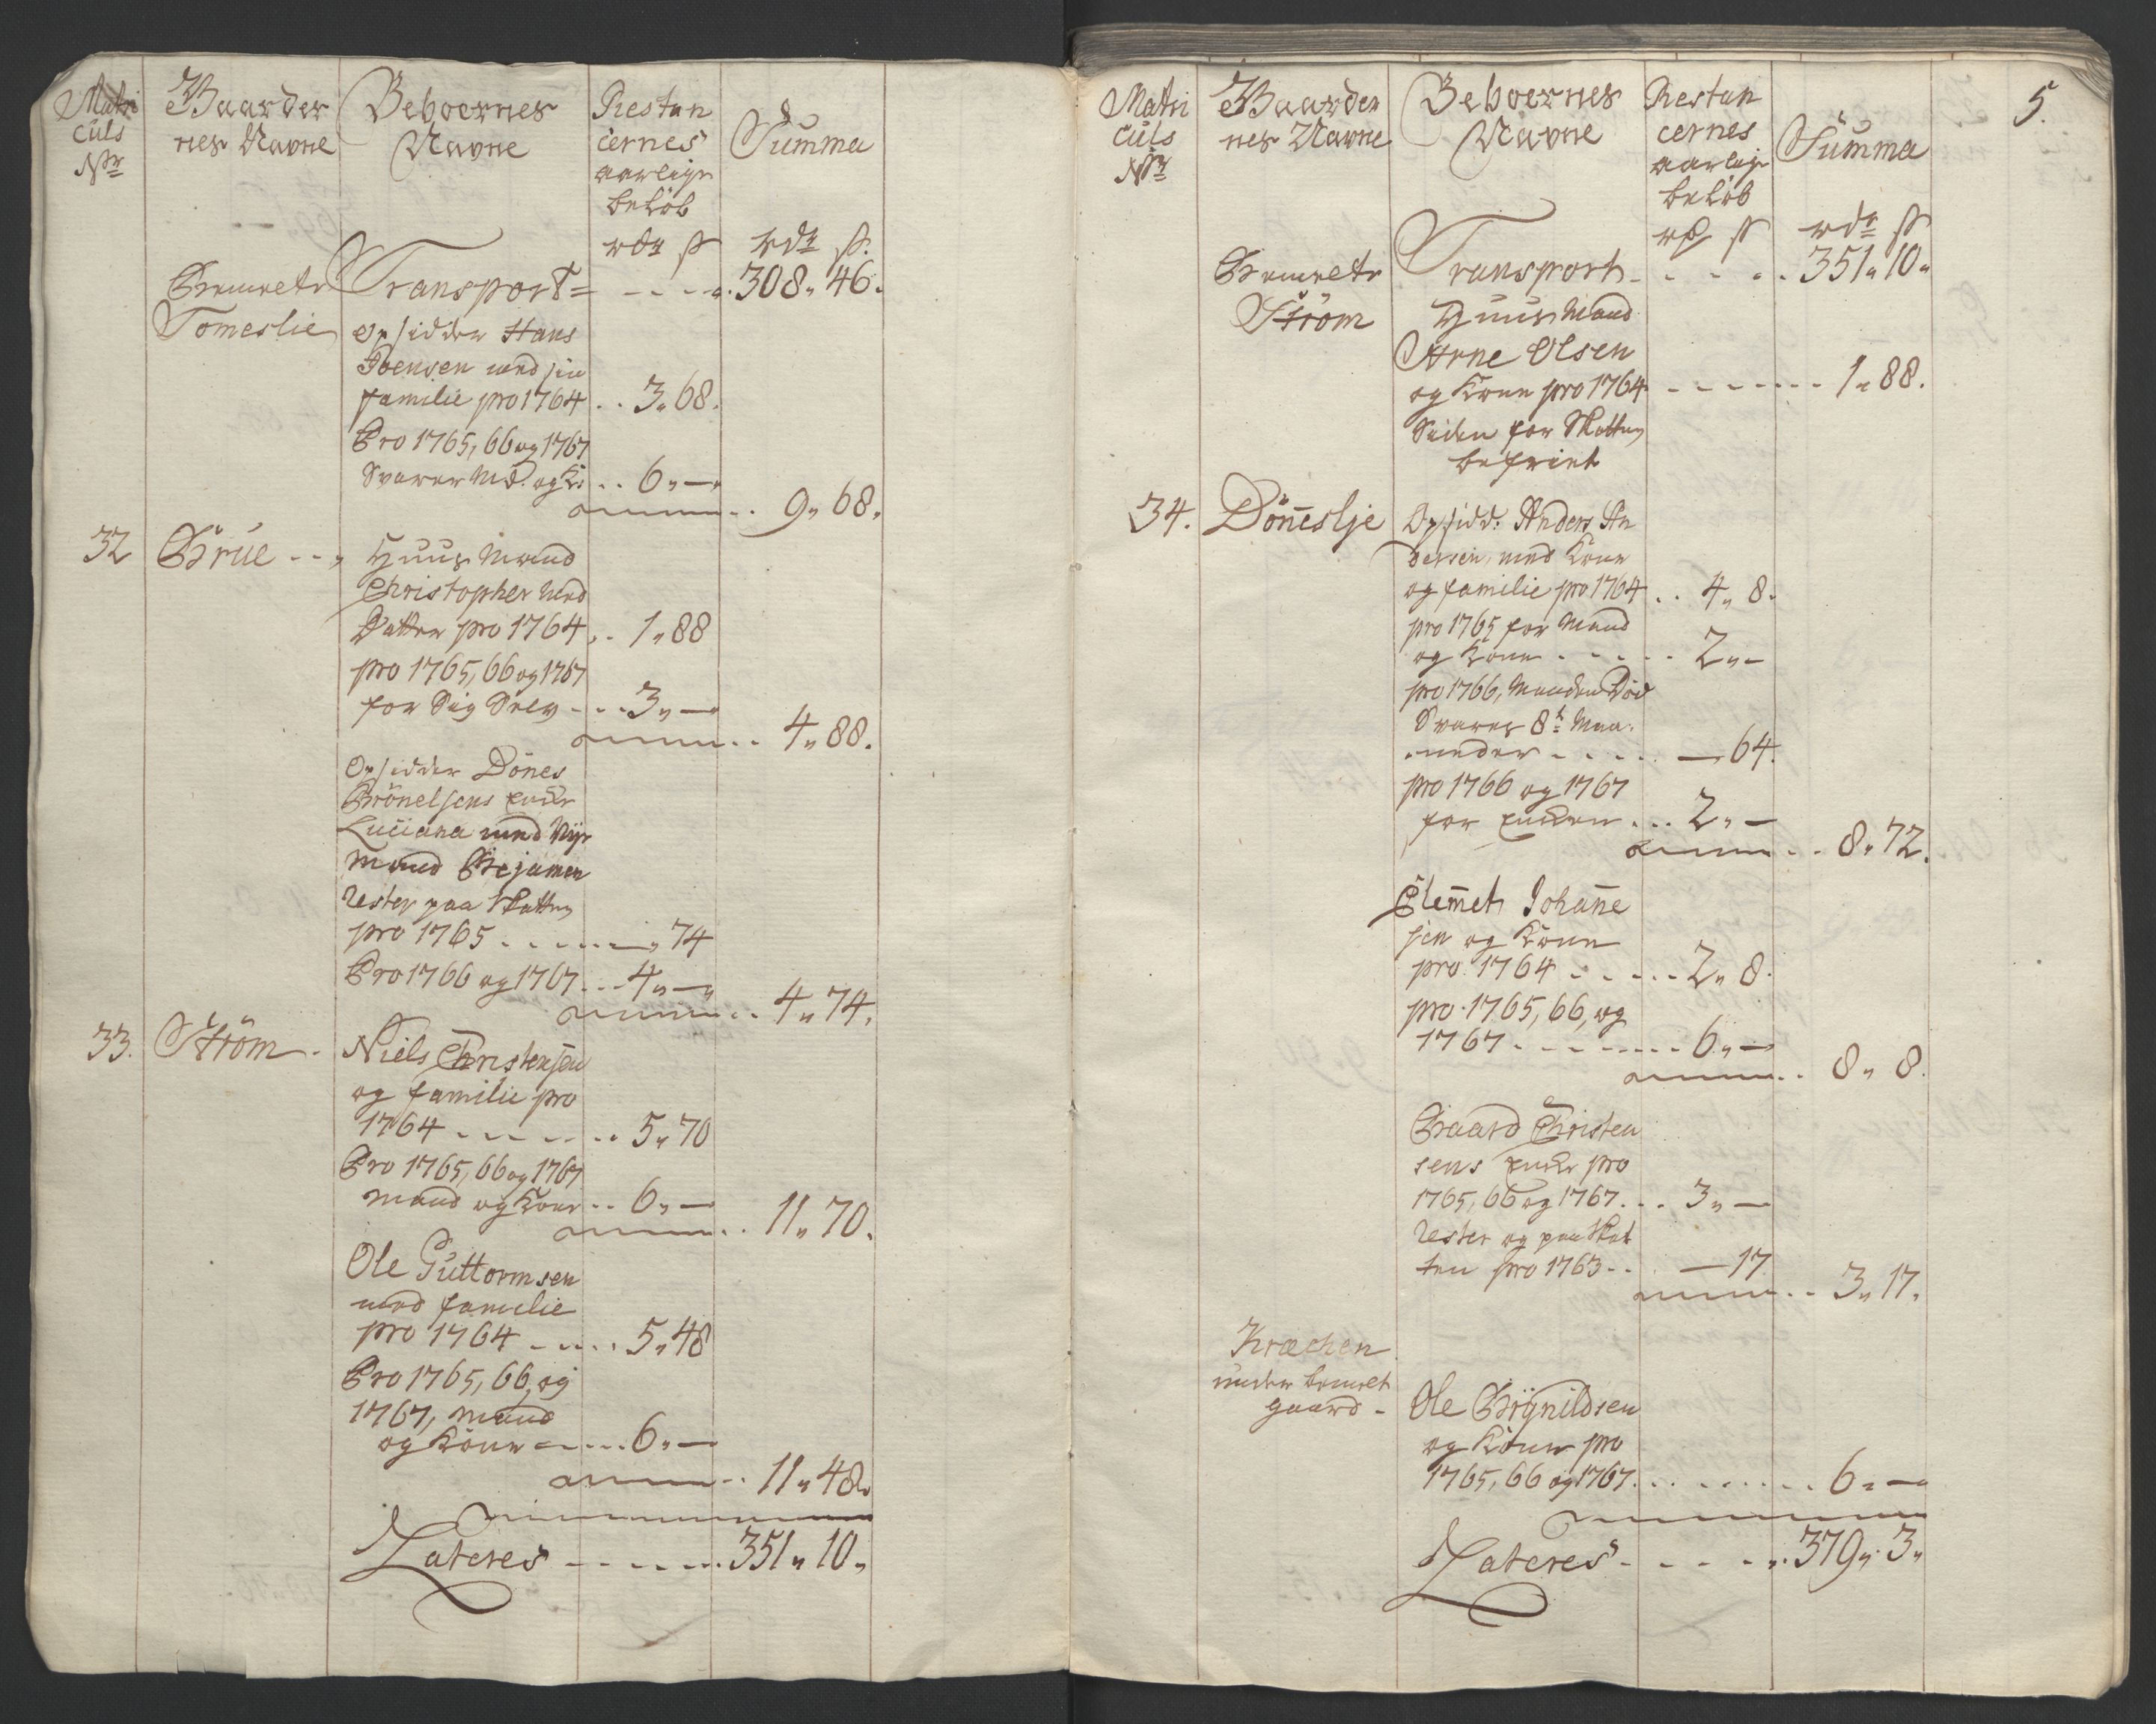 Matri
culs
Nr
Gaarder
nes Navne
Beboernes
Navne
Restan
cernes
aarlige
beløb
Summa
rdr ß
rdr ß.
Transport= 308„ 46.
Tomeslie
Opsidder Hans
Joensen med sin
familie pro 1764 . . 3„ 68.
Pro 1765, 66 og 1767
Svarer Md. og K: . . 6„ —
9„ 68.
32 Grue
Huus Mand
Christopher med
Datter pro 1764 . . 1„ 88
pro 1765, 66 og 1767
for Sig Selv - . . . 3„ —
4„ 88.
Opsidder Dönes
Grönelsens Encke
Luciana med Nye
Mand Bejamen
rester paa Skatten
pro 1765 . . . . . . — „ 74
Pro 1766 og 1767 . . . 4„ —
4„ 74.
33. Ström.
Niels Christensen
og familie pro
1764 . . . . . . . 5„ 70
Pro 1765, 66 og 1767
Mand og Kone . . 6„ —
11„ 70.
Ole Guttormsen
med familie
pro 1764 . . . . . 5„ 48
Pro 1765, 66, og
1767, Mand
og Kone . . . . . 6„ —
11„ 48.
Lateres . . . . . . 351„ 10„
5.
Matri
culs
Nr
Gaarder
nes Navne
Beboernes
Navne
Restan
cernes
aarlige
beløb
Summa
rdr ß
Transport . . . . . 351„ 10„
Ström
Huus Mand
Arne Olsen
og Kone pro 1764 . . . . . . . 1„ 88.
Siden for Skatten
befriet
34. Döneslje
Opsidd: Anders An
dersen, med Kone
og familie pro 1764 . . 4„ 8.
pro 1765 for Mand
og Kone . . . . . 2„ —
pro 1766, Manden Död
Svares 8te Maa-
neder . . . . . — 64.
pro 1766 og 1767
for Encken . . . 2„ —
8„ 72.
Clemet Johane
sen og Kone
pro 1764 . . . . . 2„ 8.
pro 1765, 66, og
1767 . . . . . . . 6„ —
8„ 8.
Baard Christen
sens Encke pro
1765, 66 og 1767 . . . 3„ —
rester og paa Skat
ten pro 1763 . . — 17
3„ 17.
Kræchen
under bemelt
gaard -
Ole Brynildsen
og Kone pro
1765, 66 og 1767 . . . . . . . 6„ —
Lateres . . . . . . 379„ 3„